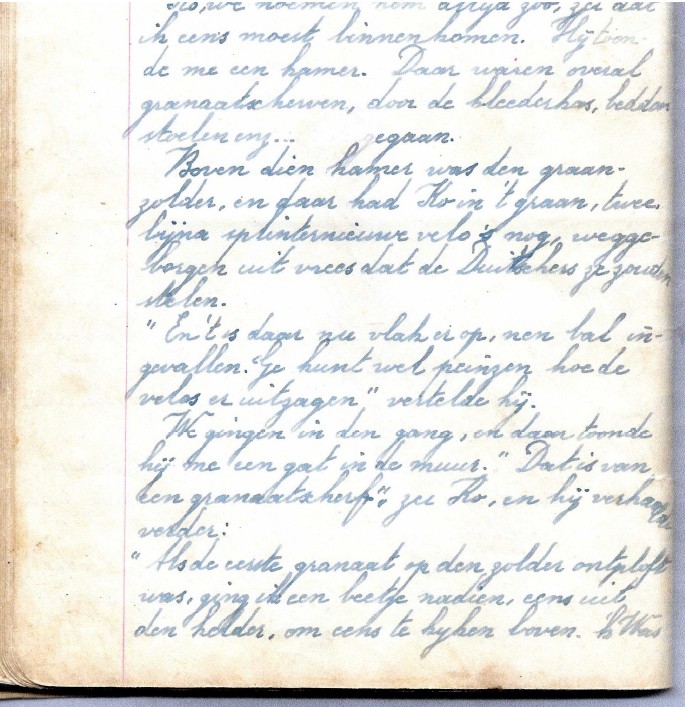 Ko, we noemen hem altijd zoo, zei dat
ik eens moest binnenkomen. Hij toon-
de me een kamer. Daar waren overal
granaatscherven, door de kleederkas, bedden
stoelen enz... gegaan.
Boven dien kamer was den graan-
zolder, en daar had Ko in 't graan, twee,
bijna splinternieuwe velo's nog, wegge-
borgen uit vrees dat de Duitschers ze zouden
stelen.
" En 't is daar nu vlak er op, nen bal in-
gevallen. Ge kunt wel peinzen hoe de
velos er uitzagen" vertelde hij.
We gingen in den gang, en daar toonde
hij me een gat in de muur. " Dat is van
een granaatscherf", zei Ko, en hij verhaalde
verder:
" Als de eerste granaat op den zolder ontploft
was, ging ik een beetje nadien, eens uit
den kelder, om eens te kijken boven. k Was